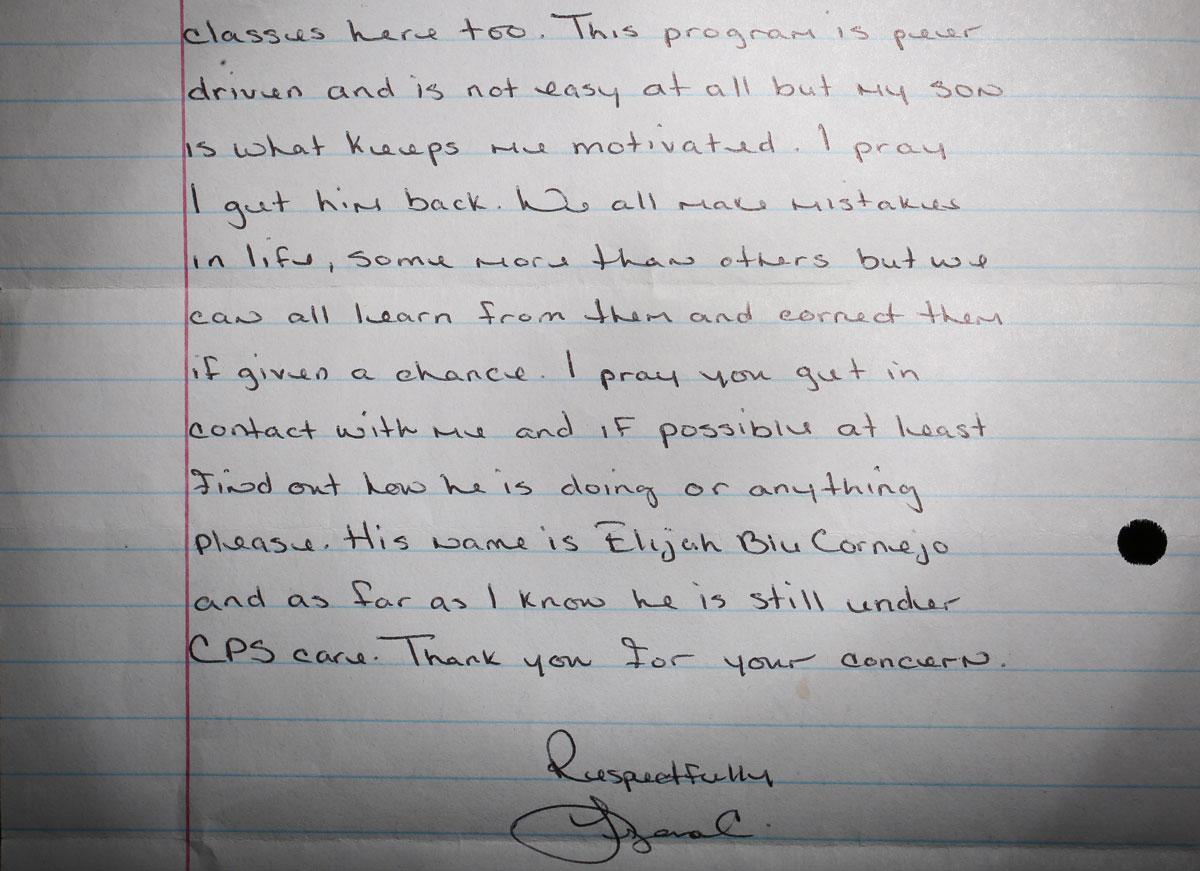 classes here too. This program is peer
driven and is not easy at all but my son
is what keeps me motivated. I pray
I get him back. We all make mistakes
in life, some more than others but we
can all learn from them and correct them
if given a chance. I pray you get in
contact with me and if possible at least
find out how he is doing or anything
please. His name is Elijah Biu Cornejo
and as far as I know he is still under
CPS care. Thank you for your concern.
Respectfully